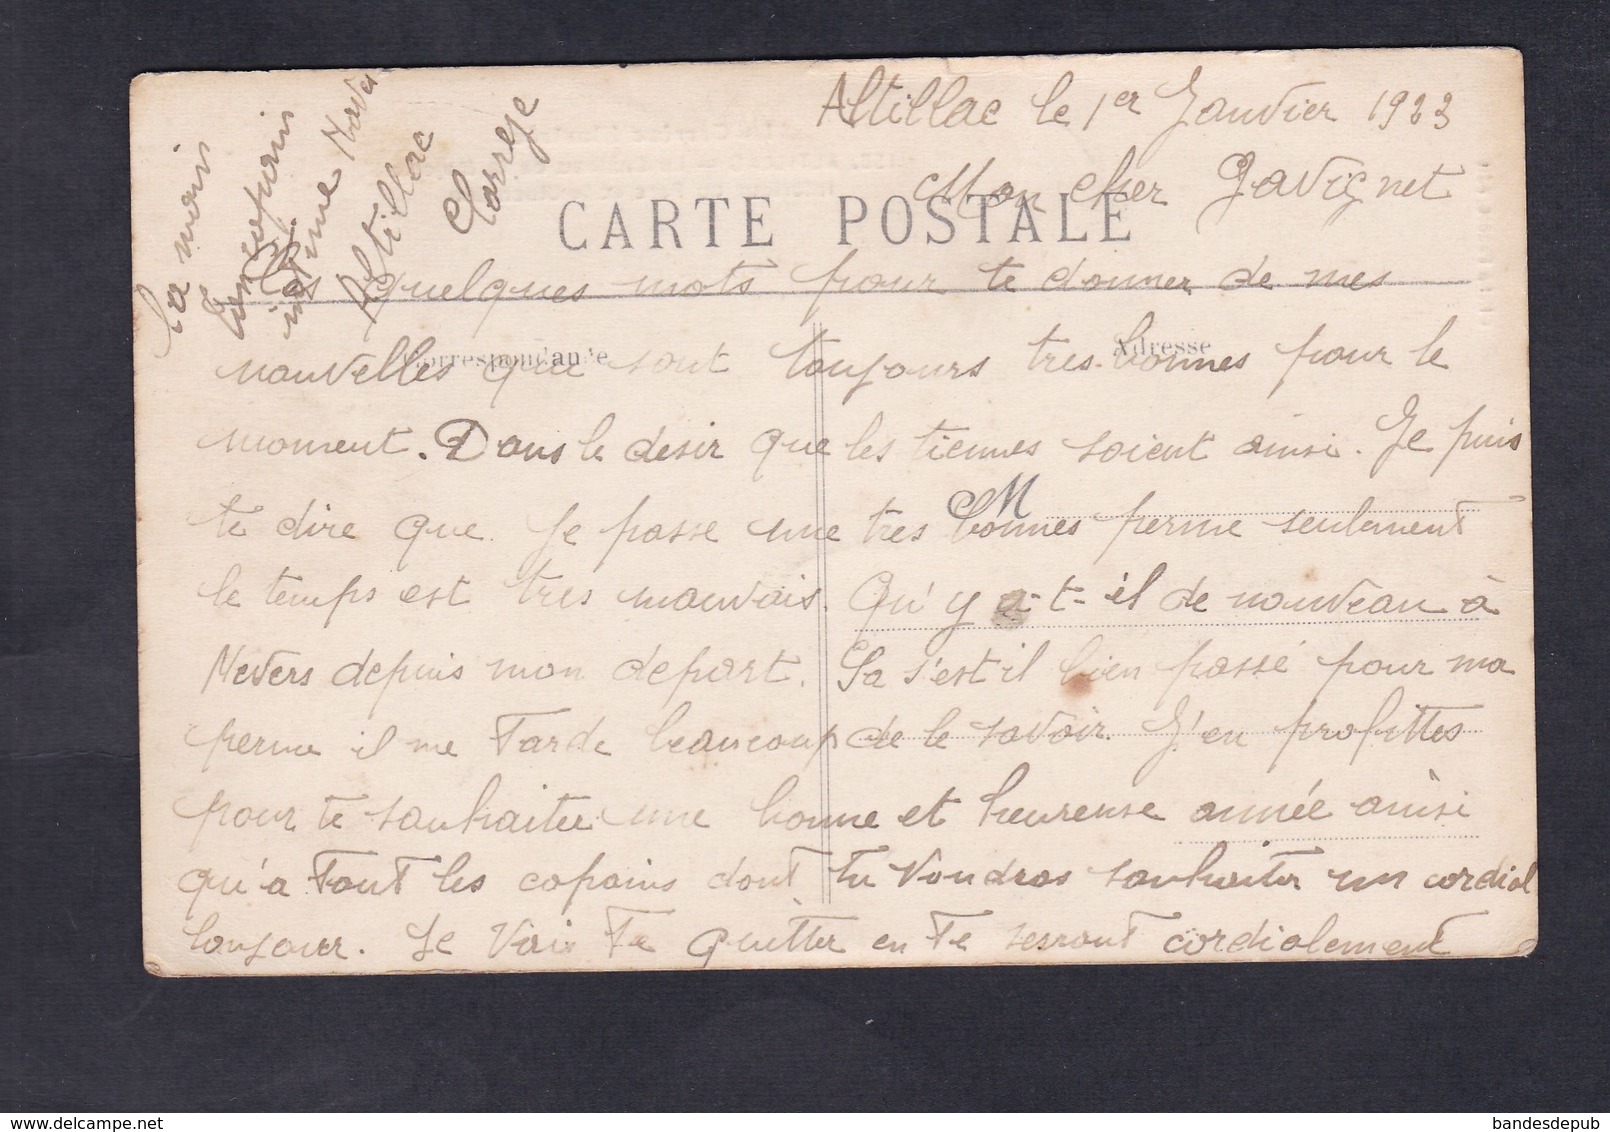 Altillac le 1er Janvier 1923
Mon cher Gavignet
CARTE POSTALE
quelques mots pour te donner de mes
Correspondance
Adresse
nouvelles qui sont toujours tres bonnes pour le
moment. Dans le desir que les tiennes soient ainsi. Je puis
M
te dire que je passe une tres bonnes perme seulement
le temps est tres mauvais. Qu'y a-t-il de nouveau à
Nevers depuis mon depart. Sa s'est il bien passé pour ma
perme il me tarde beaucoup de le savoir. J'en profittes
pour te souhaiter une bonne et heureuse année ainsi
qu'a tout les copains dont tu voudras souhaiter un cordial
bonjour. Je vais te quitter en te serrant cordialement
la main
ton copain
intime
Altillac
Correze
bandesdepub